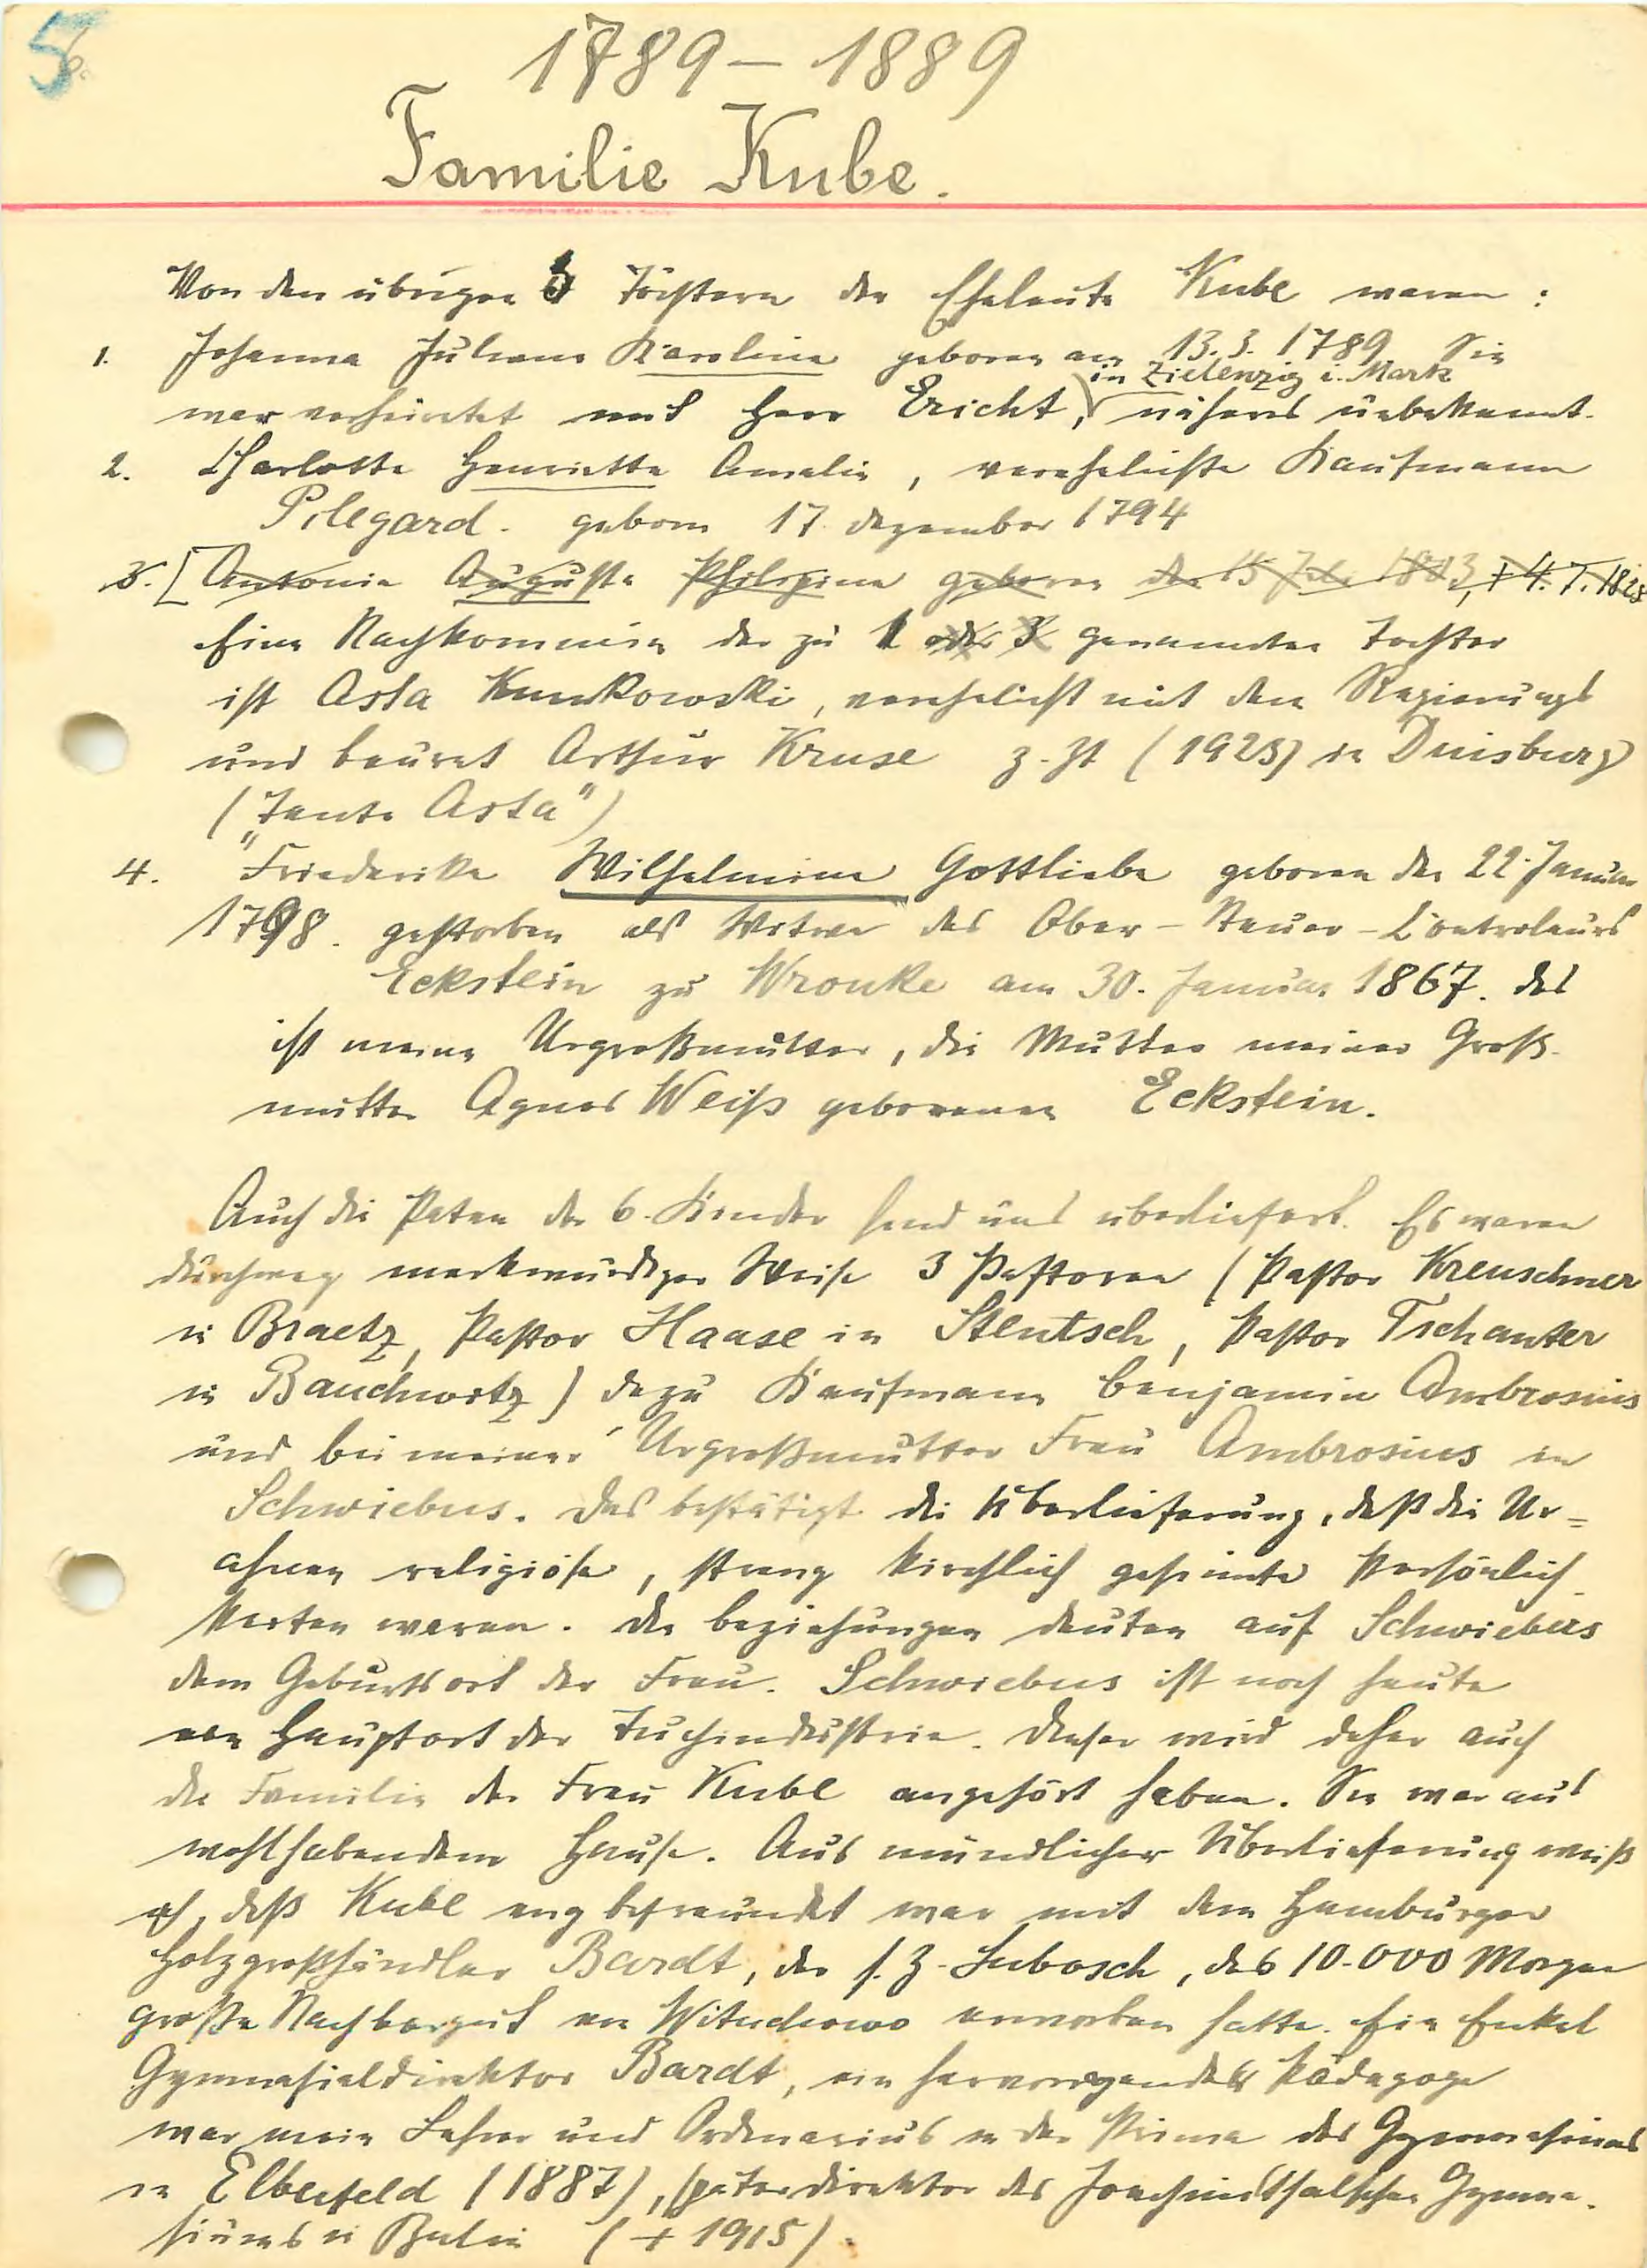 5
1789 – 1889
Familie Kube.
Von den übrigen 3 Töchtern der Eheleute Kube waren:
1. Johanna Juliane Karoline geboren am 13.3.1789. Sie
in Zielenzig i. Mark
war verheiratet mit Herr Ericht, näheres unbekannt.
2. Charlotte Henriette Amalie, verehelichte Kaufmann
Pilegard. geboren 17. Dezember 1794
3. [Antonie Auguste Philippine geboren den 15 Juli 1803, † 4.7.18
Eine Nachkommin der zu 1 oder 3 genannten Tochter
ist Asta , verehelicht mit dem Regierungs
und Baurat Arthur Kruse z. Zt (1925) in Duisburg
("Tante Asta")
4. Friederike Wilhelmine Gottliebe geboren den 22. Januar
1798. gestorben als Witwe des Ober-Steuer-Controleurs
Eckstein zu Wronke am 30. Januar 1867. Das
ist meine Urgroßmutter, die Mutter meiner Groß-
mutter Agnes Weiß geborenen Eckstein.
Auch die Paten der 6 Kinder sind uns überliefert. Es waren
durchweg merkwürdiger Weise 3 Pastoren (Pastor Kreuschner
in Braetz, Pastor Haase in Stentsch, Pastor Tschanter
in Bauchwitz) dazu Kaufmann Benjamin Ambrosius
und bei meiner Urgroßmutter Frau Ambrosius in
Schwiebus. Das bestätigt die Überlieferung, daß die Ur=
ahnen religiöse, streng kirchlich gesinnte Persönlich-
keiten waren. Die Beziehungen deuten auf Schwiebus
dem Geburtsort der Frau. Schwiebus ist noch heute
ein Hauptort der Tuchindustrie. Dieser wird daher auch
die Familie der Frau Kube angehört haben. Sie war aus
wohlhabendem Hause. Aus mündlicher Überlieferung weiß
ich, daß Kube eng befreundet war mit dem Hamburger
Holzgroßhändler Bardt, der s. Z. Lubosch, das 10.000 Morgen
große Nachbargut von Wituchowo erworben hatte. Ein Enkel
Gymnasialdirektor Bardt, ein hervorragender Pädagoge
war mein Lehrer und Ordinarius in der Prima des Gymnasiums
in Elberfeld (1887), später Direktor des Joachimsthalschen Gymna-
siums in Berlin († 1915).